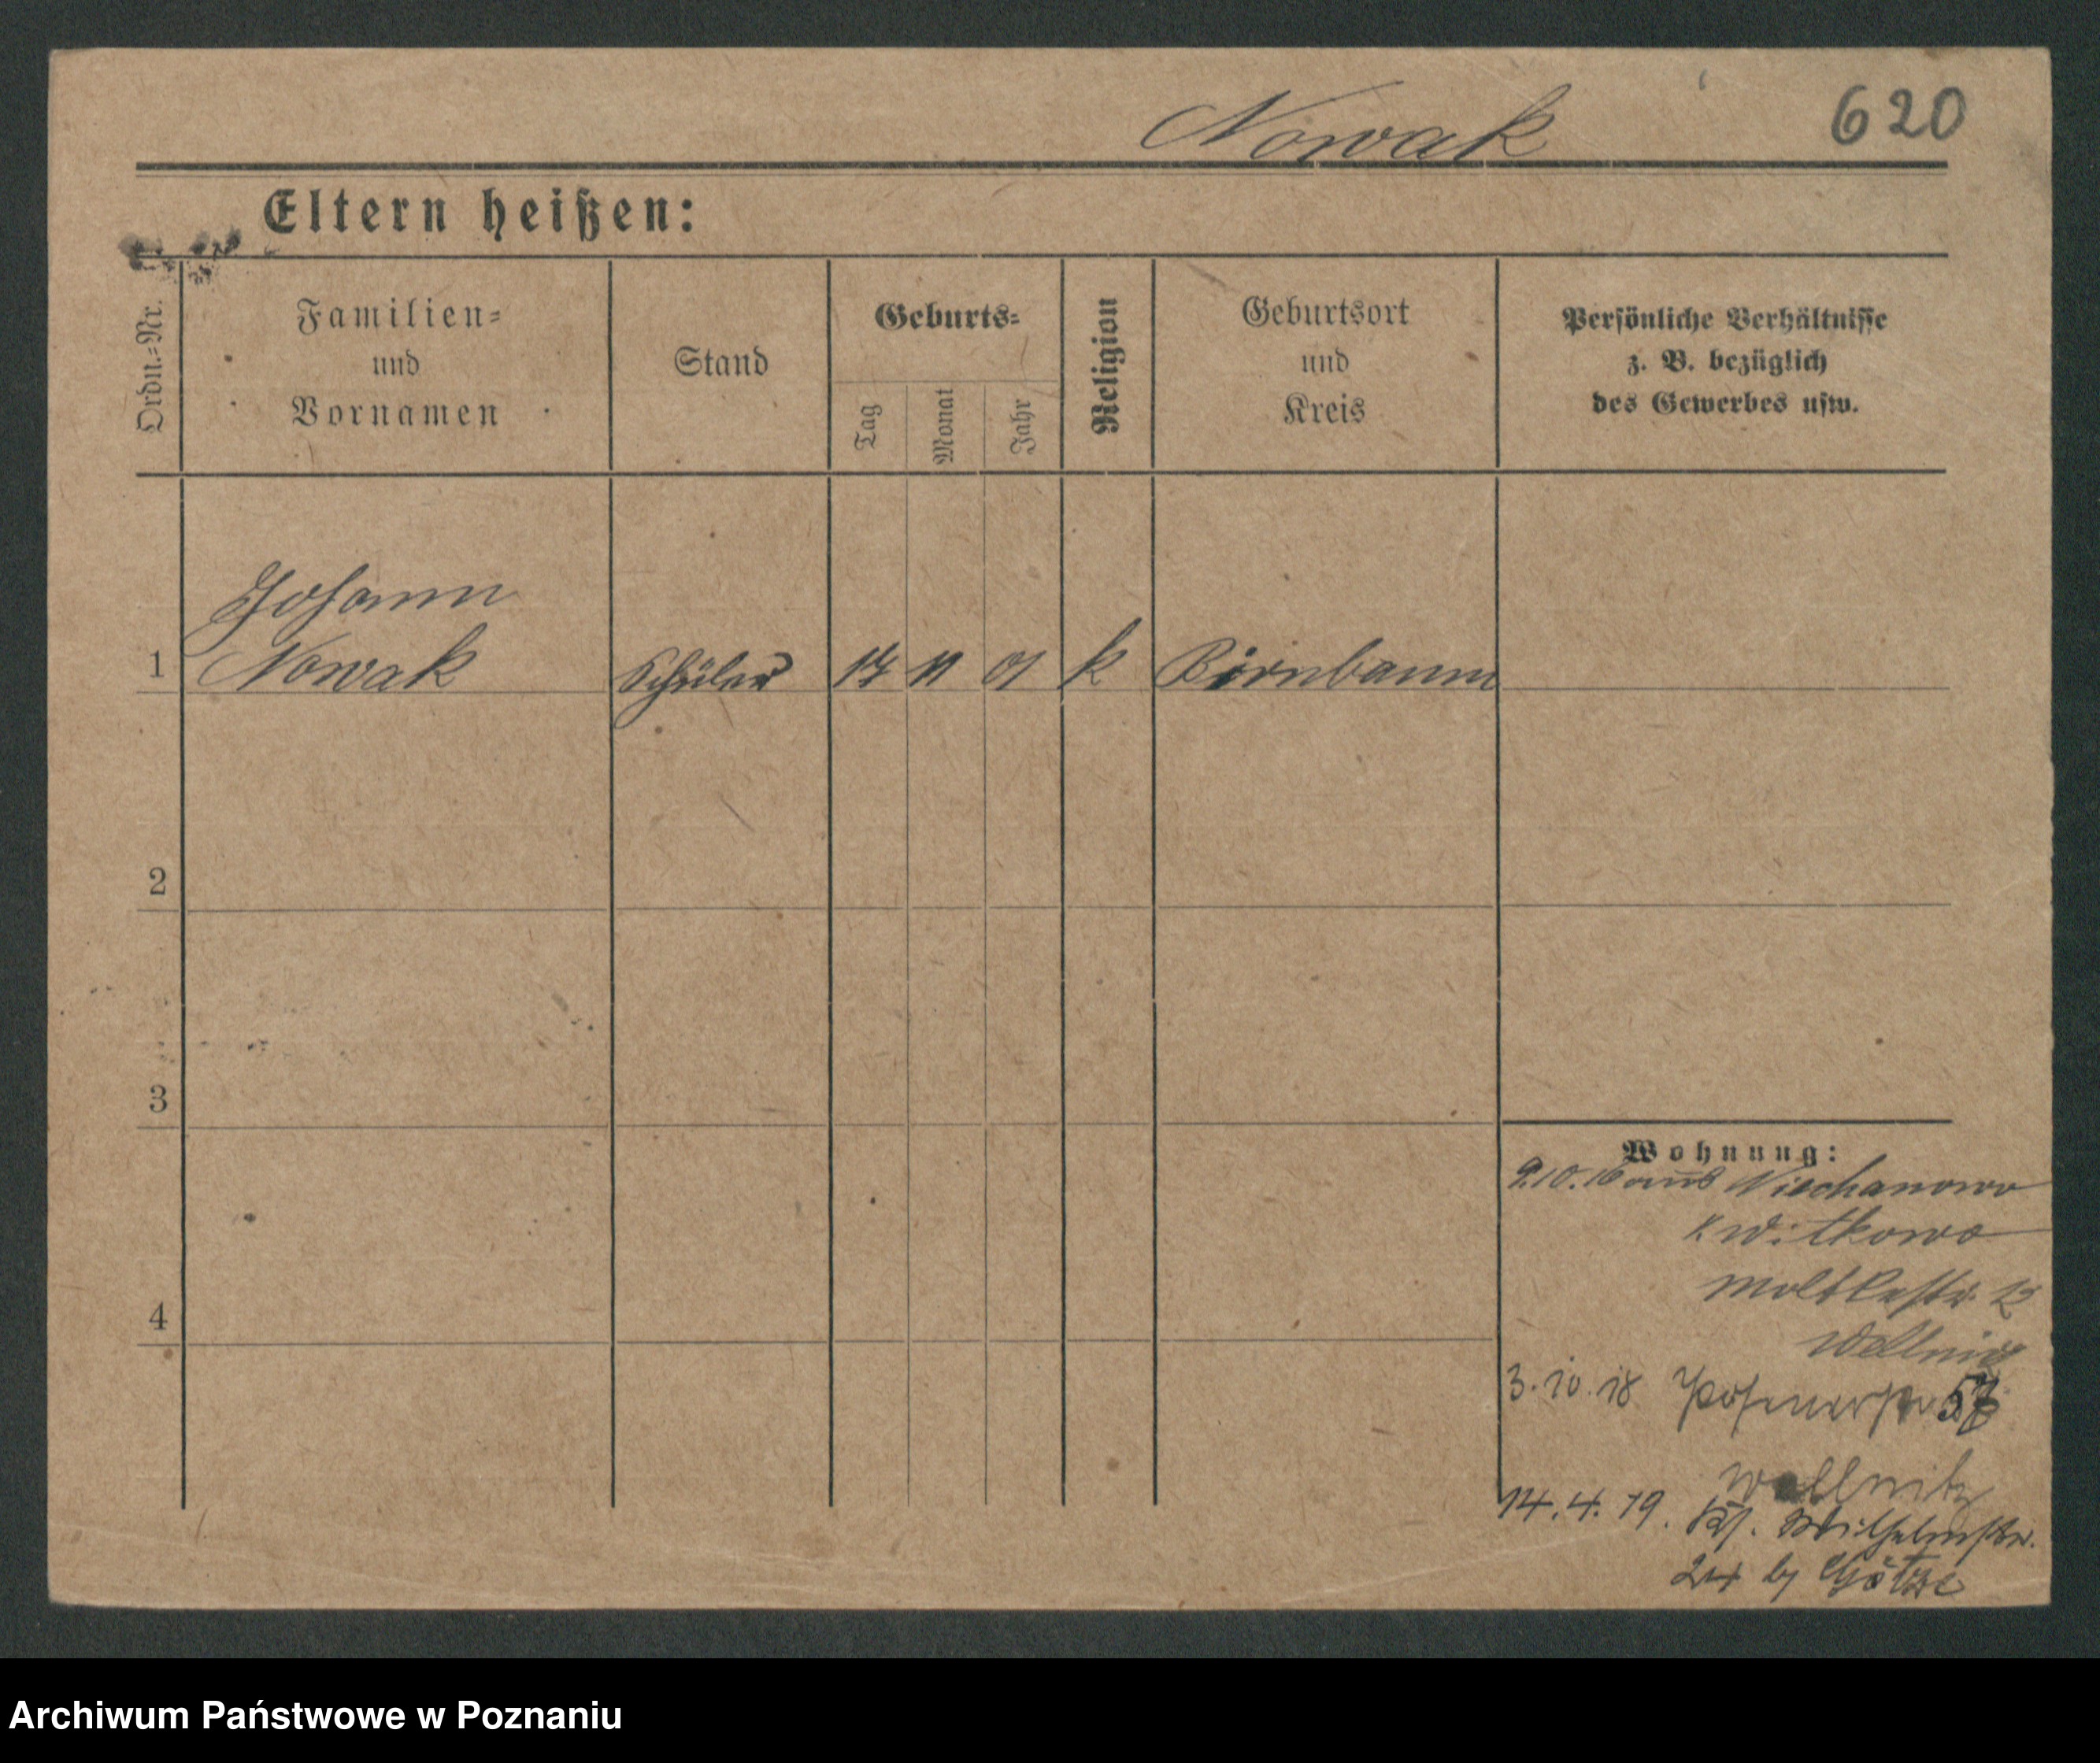 Nowak 620
Eltern heißen:
Ordn.-Nr.
Familien-
und
Vornamen
Stand
Geburts-
Tag
Monat
Jahr
Religion
Geburtsort
und
Kreis
Persönliche Verhältnisse
z. B. bezüglich
des Gewerbes usw.
Johann
1 Nowak Schüler 17 11 01 k Birnbaum
2
3
4
Wohnung:
9.10.16 aus Niechanowo
K Witkowo
Moltkestr. 12
Wellnitz
3.10.18 Posenerstr 57
Wellnitz
14.4.19. Wilhelmstr.
24 b/ Götze
Archiwum Państwowe w Poznaniu